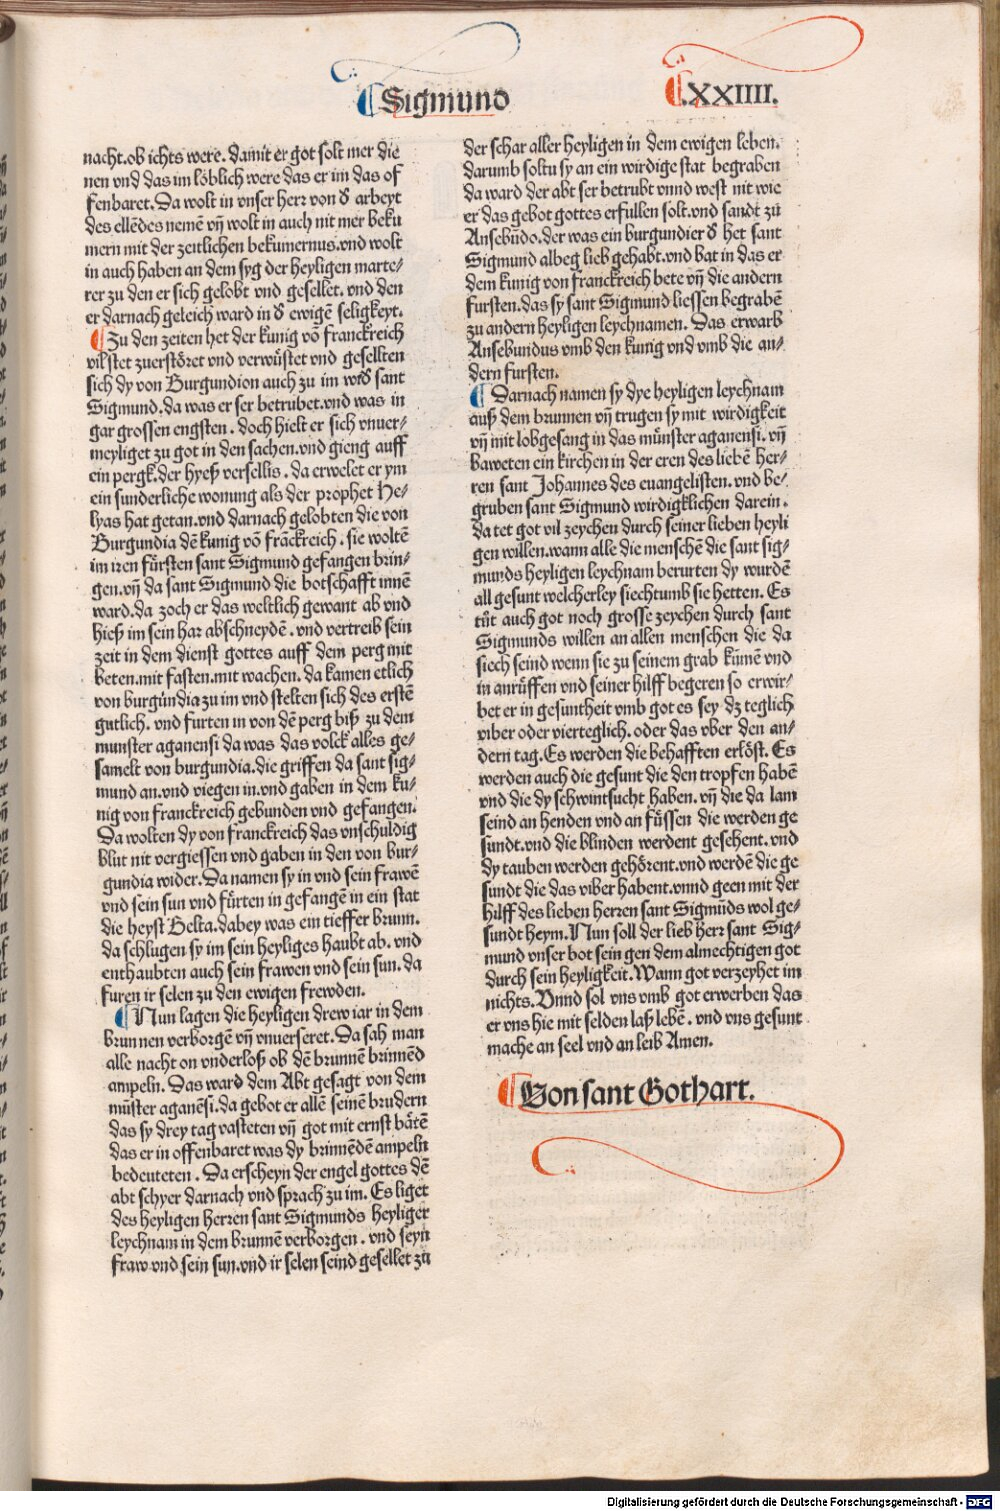 Sigmund
.XXIIII.
nacht.ob ichts were. damit er got solt mer die
nen vnd das im löblich were das er im das of
fenbaret. Da wolt in vnser herr von đ arbeyt
des ellēdes nemē vñ wolt in auch nit mer bekü
mern mit der zeitlichen bekümernus.vnd wolt
in auch haben an dem syg der heyligen marte⸗
rer zu den er sich gelobt vnd gesellet. vnd den
er darnach geleich ward in đ ewigē seligkeyt.
Zu den zeiten het der kunig vō franckreich
vil stet zuerstöret vnd verwüstet vnd gesellten
sich dy von Burgundion auch zu im wiđ sant
Sigmund. da was er ser betrubet.vnd was in
gar grossen engsten. doch hielt er sich vnuer⸗
meyliget zu got in den sachen.vnd gieng auff
ein pergk.der hyeß versellis. da erwelet er ym
ein sunderliche wonung als der prophet He⸗
lyas hat getan.vnd darnach gelobten die von
Burgundia dē kunig vō frāckreich. sie woltē
im iren fürsten sant Sigmund gefangen brin⸗
gen.vñ da sant Sigmund die botschafft innē
ward.da zoch er das weltlich gewant ab vnd
hieß im sein har abschneydē. vnd vertreib sein
zeit in dem dienst gottes auff dem perg mit
beten.mit fasten.mit wachen. da kamen etlich
von burgundia zu im vnd stelten sich des erstē
gutlich. vnd furten in von dē perg biß zu dem
munster aganensi da was das volck alles ge⸗
samelt von burgundia.die griffen da sant sig⸗
mund an.vnd viegen in.vnd gaben in dem ku⸗
nig von franckreich gebunden vnd gefangen.
Da wolten dy von franckreich das vnschuldig
blut nit vergiessen vnd gaben in den von bur⸗
gundia wider. Da namen sy in vnd sein frawē
vnd sein sun vnd fürten in gefangē in ein stat
die heyst Belta.dabey was ein tieffer brunn.
da schlugen sy im sein heyliges haubt ab. vnd
enthaubten auch sein frawen vnd sein sun. da
furen ir selen zu den ewigen frewden.
Nun lagen die heyligen drew iar in dem
brunnen verborgē vñ vnuerseret. Da sah man
alle nacht on vnderloß ob dē brunnē brinnēd
ampeln. Das ward dem Abt gesagt von dem
müster aganēsi.da gebot er allē seinē brudern
das sy drey tag vasteten vñ got mit ernst bätē
das er in offenbaret was dy brinnēdē ampeln
bedeuteten. Da erscheyn der engel gottes dē
abt schyer darnach vnd sprach zu im. Es liget
des heyligen herren sant Sigmunds heyliger
leychnam in dem brunnē verborgen. vnd seyn
fraw vnd sein sun.vnd ir selen seind gesellet zu
der schar aller heyligen in dem ewigen leben.
darumb soltu sy an ein wirdige stat begraben
da ward der abt ser betrubt vnnd west nit wie
er das gebot gottes erfullen solt.vnd sandt zü
Ansebūdo.der was ein burgundier đ het sant
Sigmund albeg lieb gehabt.vnd bat in das er
dem kunig von franckreich bete vñ die andern
fursten.das sy sant Sigmund liessen begrabē
zu andern heyligen leychnamen. Das erwarb
Ansebundus vmb den kunig vnd vmb die an⸗
dern fursten.
Darnach namen sy dye heyligen leychnam
auß dem brunnen vñ trugen sy mit wirdigkeit
vñ mit lobgesang in das münster aganensi. vñ
baweten ein kirchen in der eren des liebē her⸗
ren sant Johannes des euangelisten. vnd be⸗
gruben sant Sigmund wirdigklichen darein.
da tet got vil zeychen durch seiner lieben heyli
gen willen.wann alle die menschē die sant sig⸗
munds heyligen leychnam berurten dy wurdē
all gesunt welcherley siechtumb sie hetten. Es
tüt auch got noch grosse zeychen durch sant
Sigmunds willen an allen menschen die da
siech seind wenn sie zu seinem grab kūmē vnd
in anrüffen vnd seiner hilff begeren so erwir⸗
bet er in gesuntheit vmb got es sey dz teglich
viber oder vierteglich. oder das vber den an⸗
dern tag. Es werden die behafften erlöst. Es
werden auch die gesunt die den tropfen habē
vnd die dy schwintsucht haben. vñ die da lam
seind an henden vnd an füssen die werden ge
sundt.vnd die blinden werdent gesehent. vnd
dy tauben werden gehörent.vnd werdē die ge
sundt die das viber habent.vnnd geen mit der
hilff des lieben herren sant Sigmūds wol ge⸗
sundt heym. Nun soll der lieb herr sant Sig⸗
mund vnser bot sein gen dem almechtigen got
durch sein heyligkeit. Wann got verzeyhet im
nichts. Vnnd sol vns vmb got erwerben das
er vns hie mit selden laß lebē. vnd vns gesunt
mache an seel vnd an leib Amen.
Von sant Gothart.
Digitalisierung gefördert durch die Deutsche Forschungsgemeinschaft - DFG